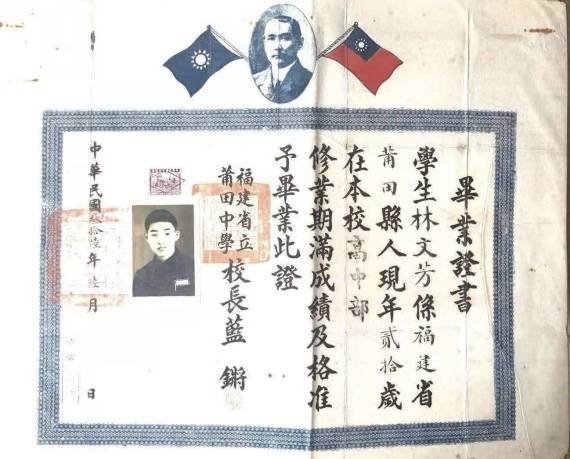 畢業證書
學生林文芳係福建省
莆田縣人現年貳拾歲
在本校高中部
修業期滿成績及格准
予畢業此證
福建省立
莆田中學
校長藍鏘
中華民國叁拾陸年 月 日